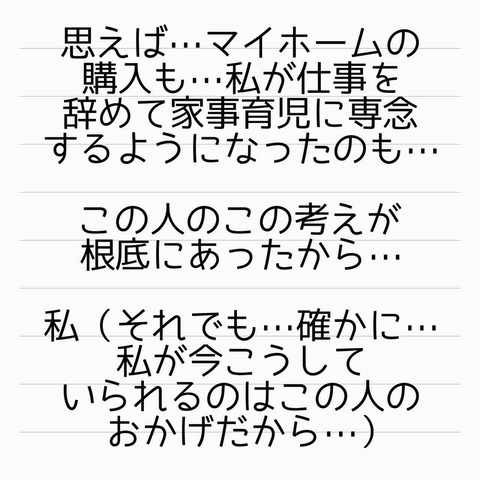 思えば…マイホームの
購入も…私が仕事を
辞めて家事育児に専念
するようになったのも…
この人のこの考えが
根底にあったから…
私（それでも…確かに…
私が今こうして
いられるのはこの人の
おかげだから…）